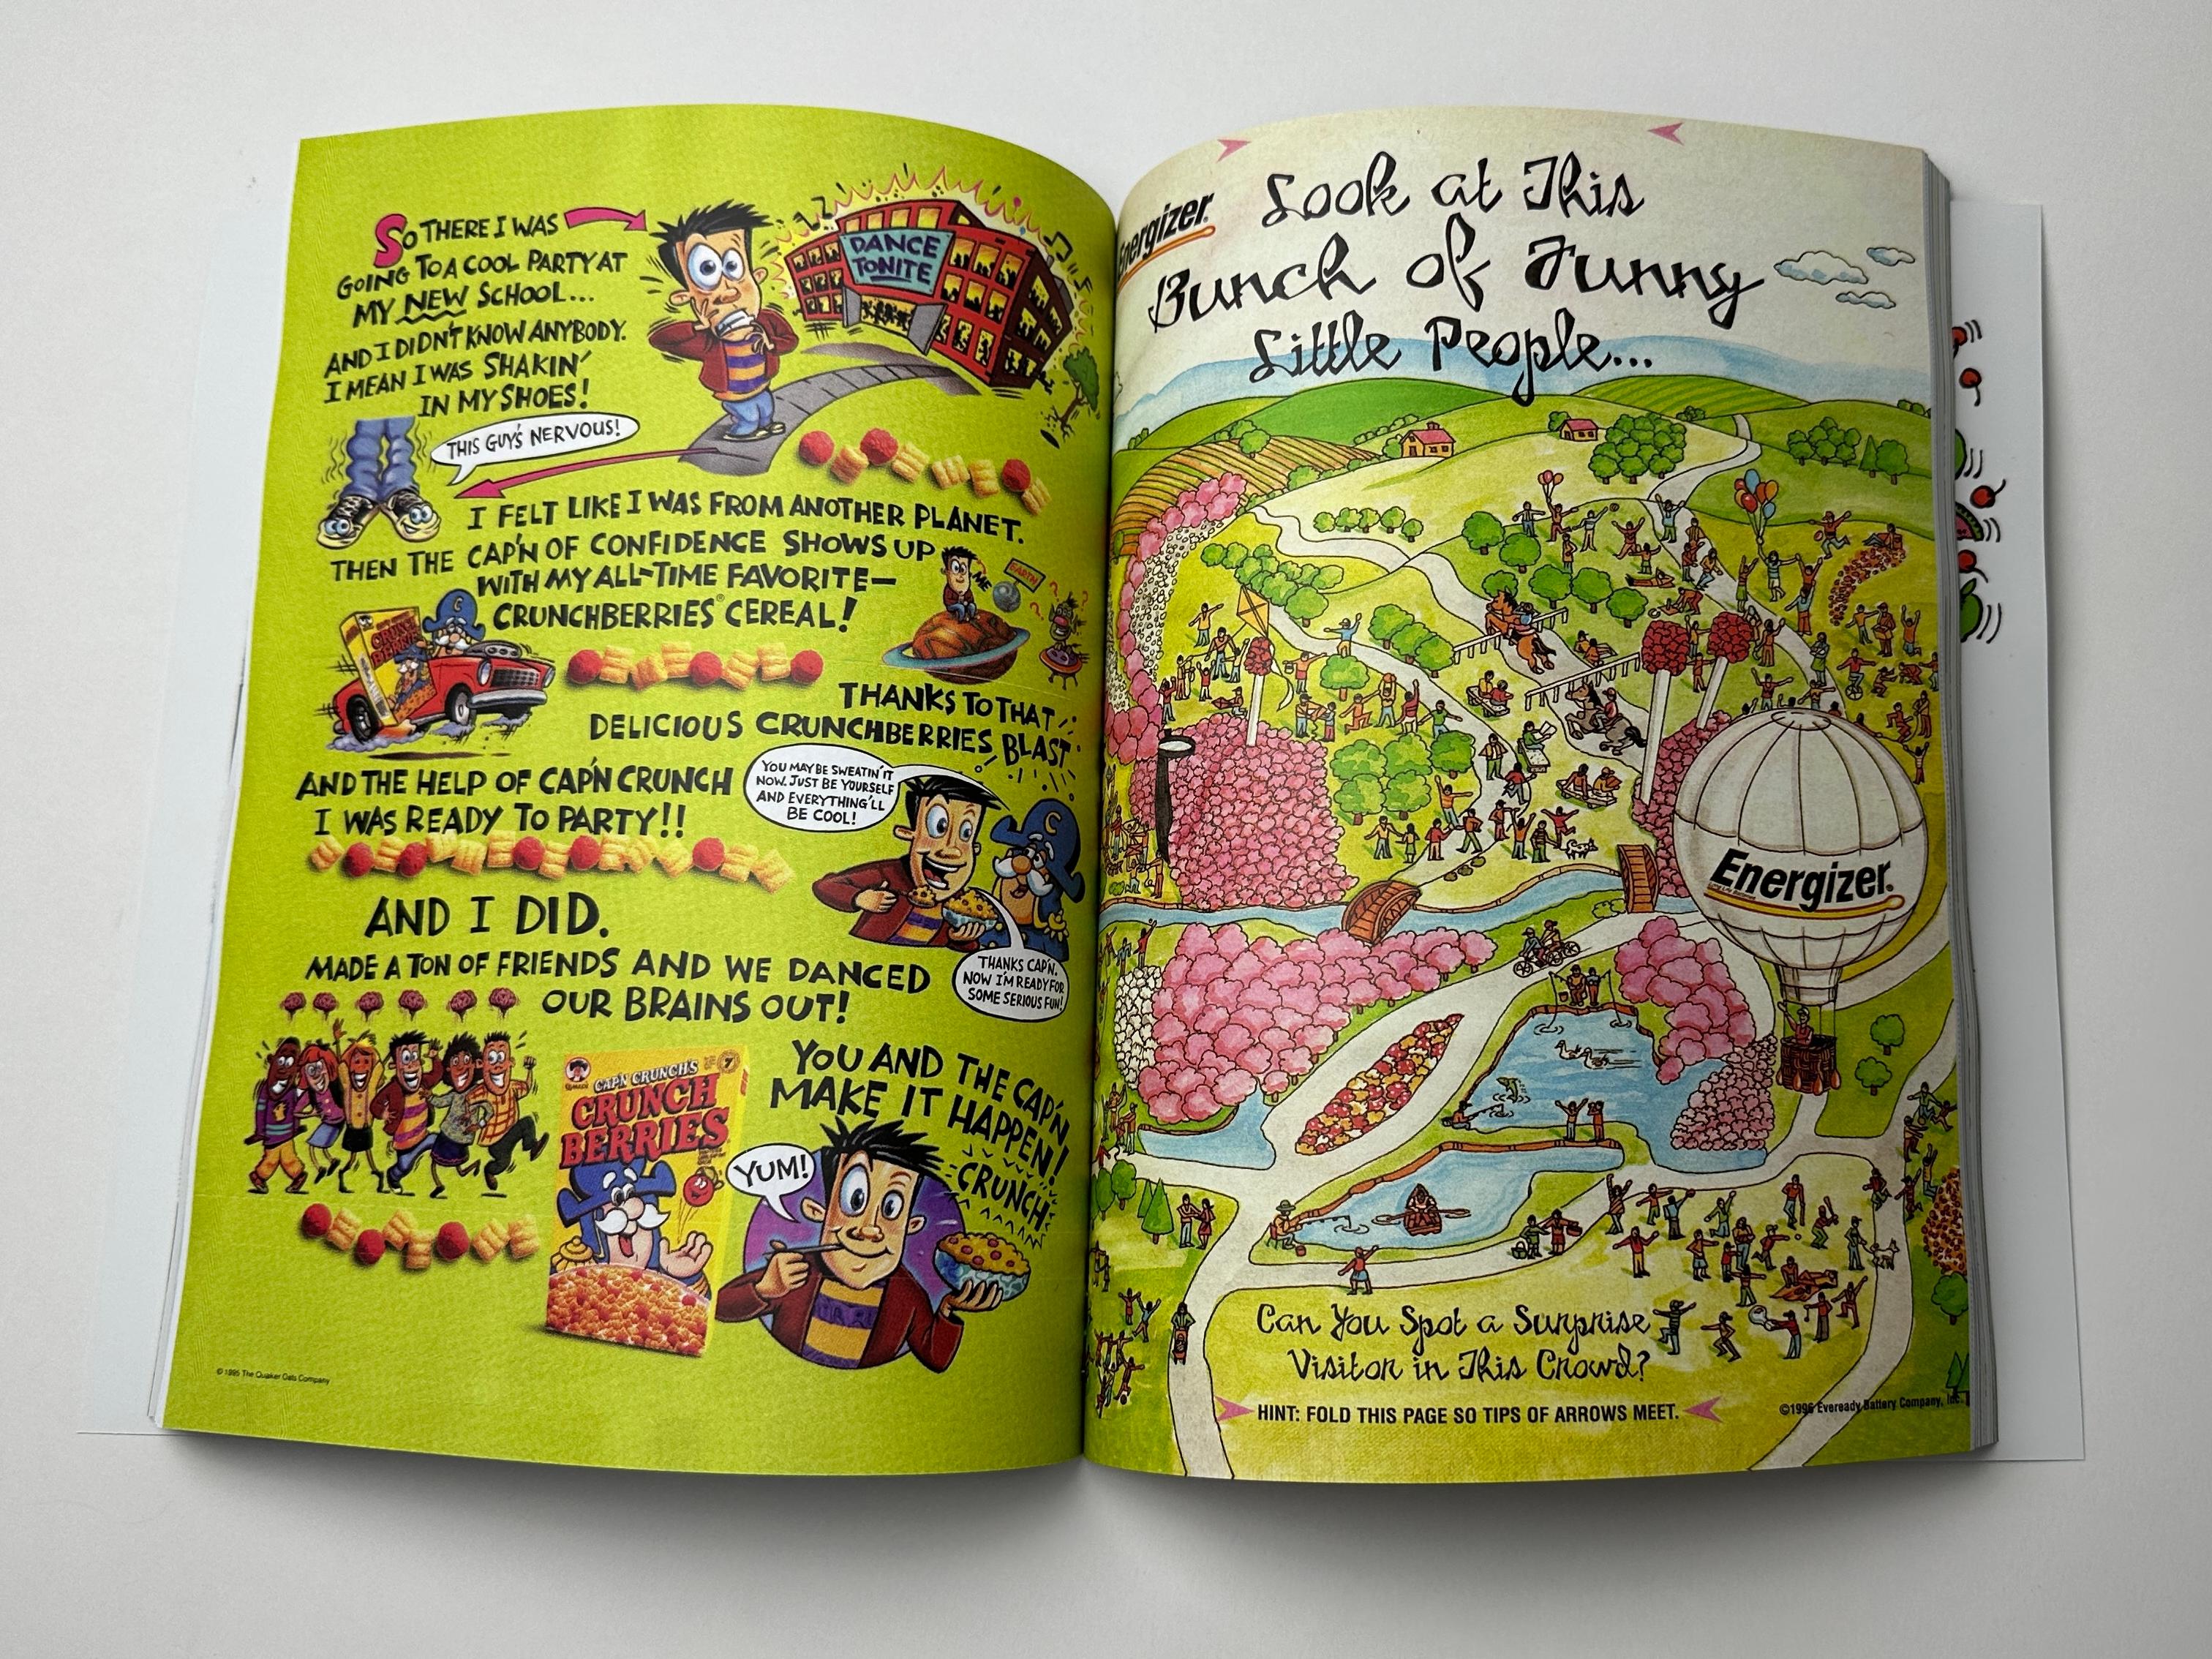 SO THERE I WAS
GOING TO A COOL PARTY AT
MY NEW SCHOOL...
AND I DIDN'T KNOW ANYBODY.
I MEAN I WAS SHAKIN'
IN MY SHOES!
DANCE
TONITE
THIS GUY'S NERVOUS!
I FELT LIKE I WAS FROM ANOTHER PLANET.
THEN THE CAP'N OF CONFIDENCE SHOWS UP
WITH MY ALL-TIME FAVORITE—
CRUNCHBERRIES® CEREAL!
ME
EARTH
CRUNCH
BERRIES
C
THANKS TO THAT
DELICIOUS CRUNCHBERRIES BLAST
AND THE HELP OF CAP'N CRUNCH
I WAS READY TO PARTY!!
YOU MAY BE SWEATIN' IT
NOW. JUST BE YOURSELF
AND EVERYTHING'LL
BE COOL!
C
THANKS CAP'N.
NOW I'M READY FOR
SOME SERIOUS FUN!
AND I DID.
MADE A TON OF FRIENDS AND WE DANCED
OUR BRAINS OUT!
YOU AND THE CAP'N
MAKE IT HAPPEN!
CRUNCH
YUM!
QUAKER
CAP'N CRUNCH'S
CRUNCH
BERRIES
© 1995 The Quaker Oats Company
Energizer.
Look at This
Bunch of Funny
Little People...
Energizer.
Can You Spot a Surprise
Visitor in This Crowd?
HINT: FOLD THIS PAGE SO TIPS OF ARROWS MEET.
Eveready Battery Company, Inc.